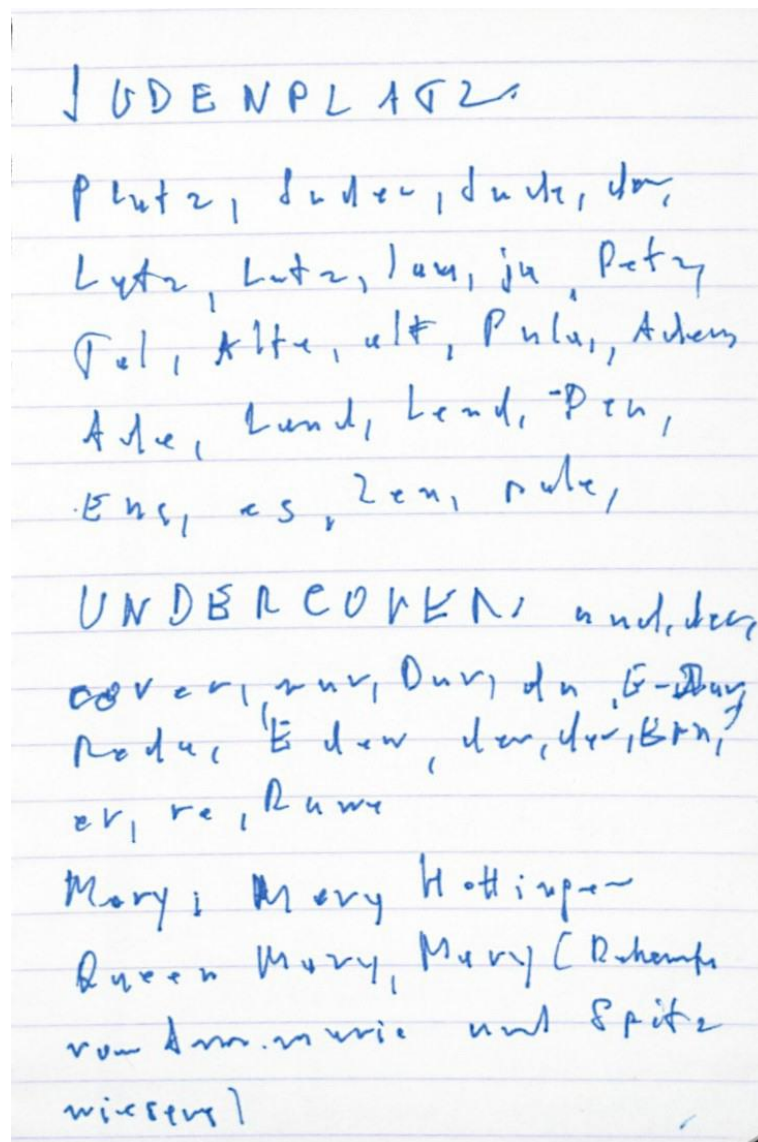 JUDENPLATZ:
Platz, Juden, Jude, der,
Lutz, Latz, lau, ja, Petz,
Tal, Alte, alt, Pula,
Ade, Land, Lend, Den,
Eng, es, Zen,
UNDERCOVER: und, der,
cover, nur, Dur, du, E-Dur,
Rede, Eden, den, der, Ern,
er, re,
Mary: Mary Hottinger
Queen Mary, Mary (
von Annemarie und Spitz